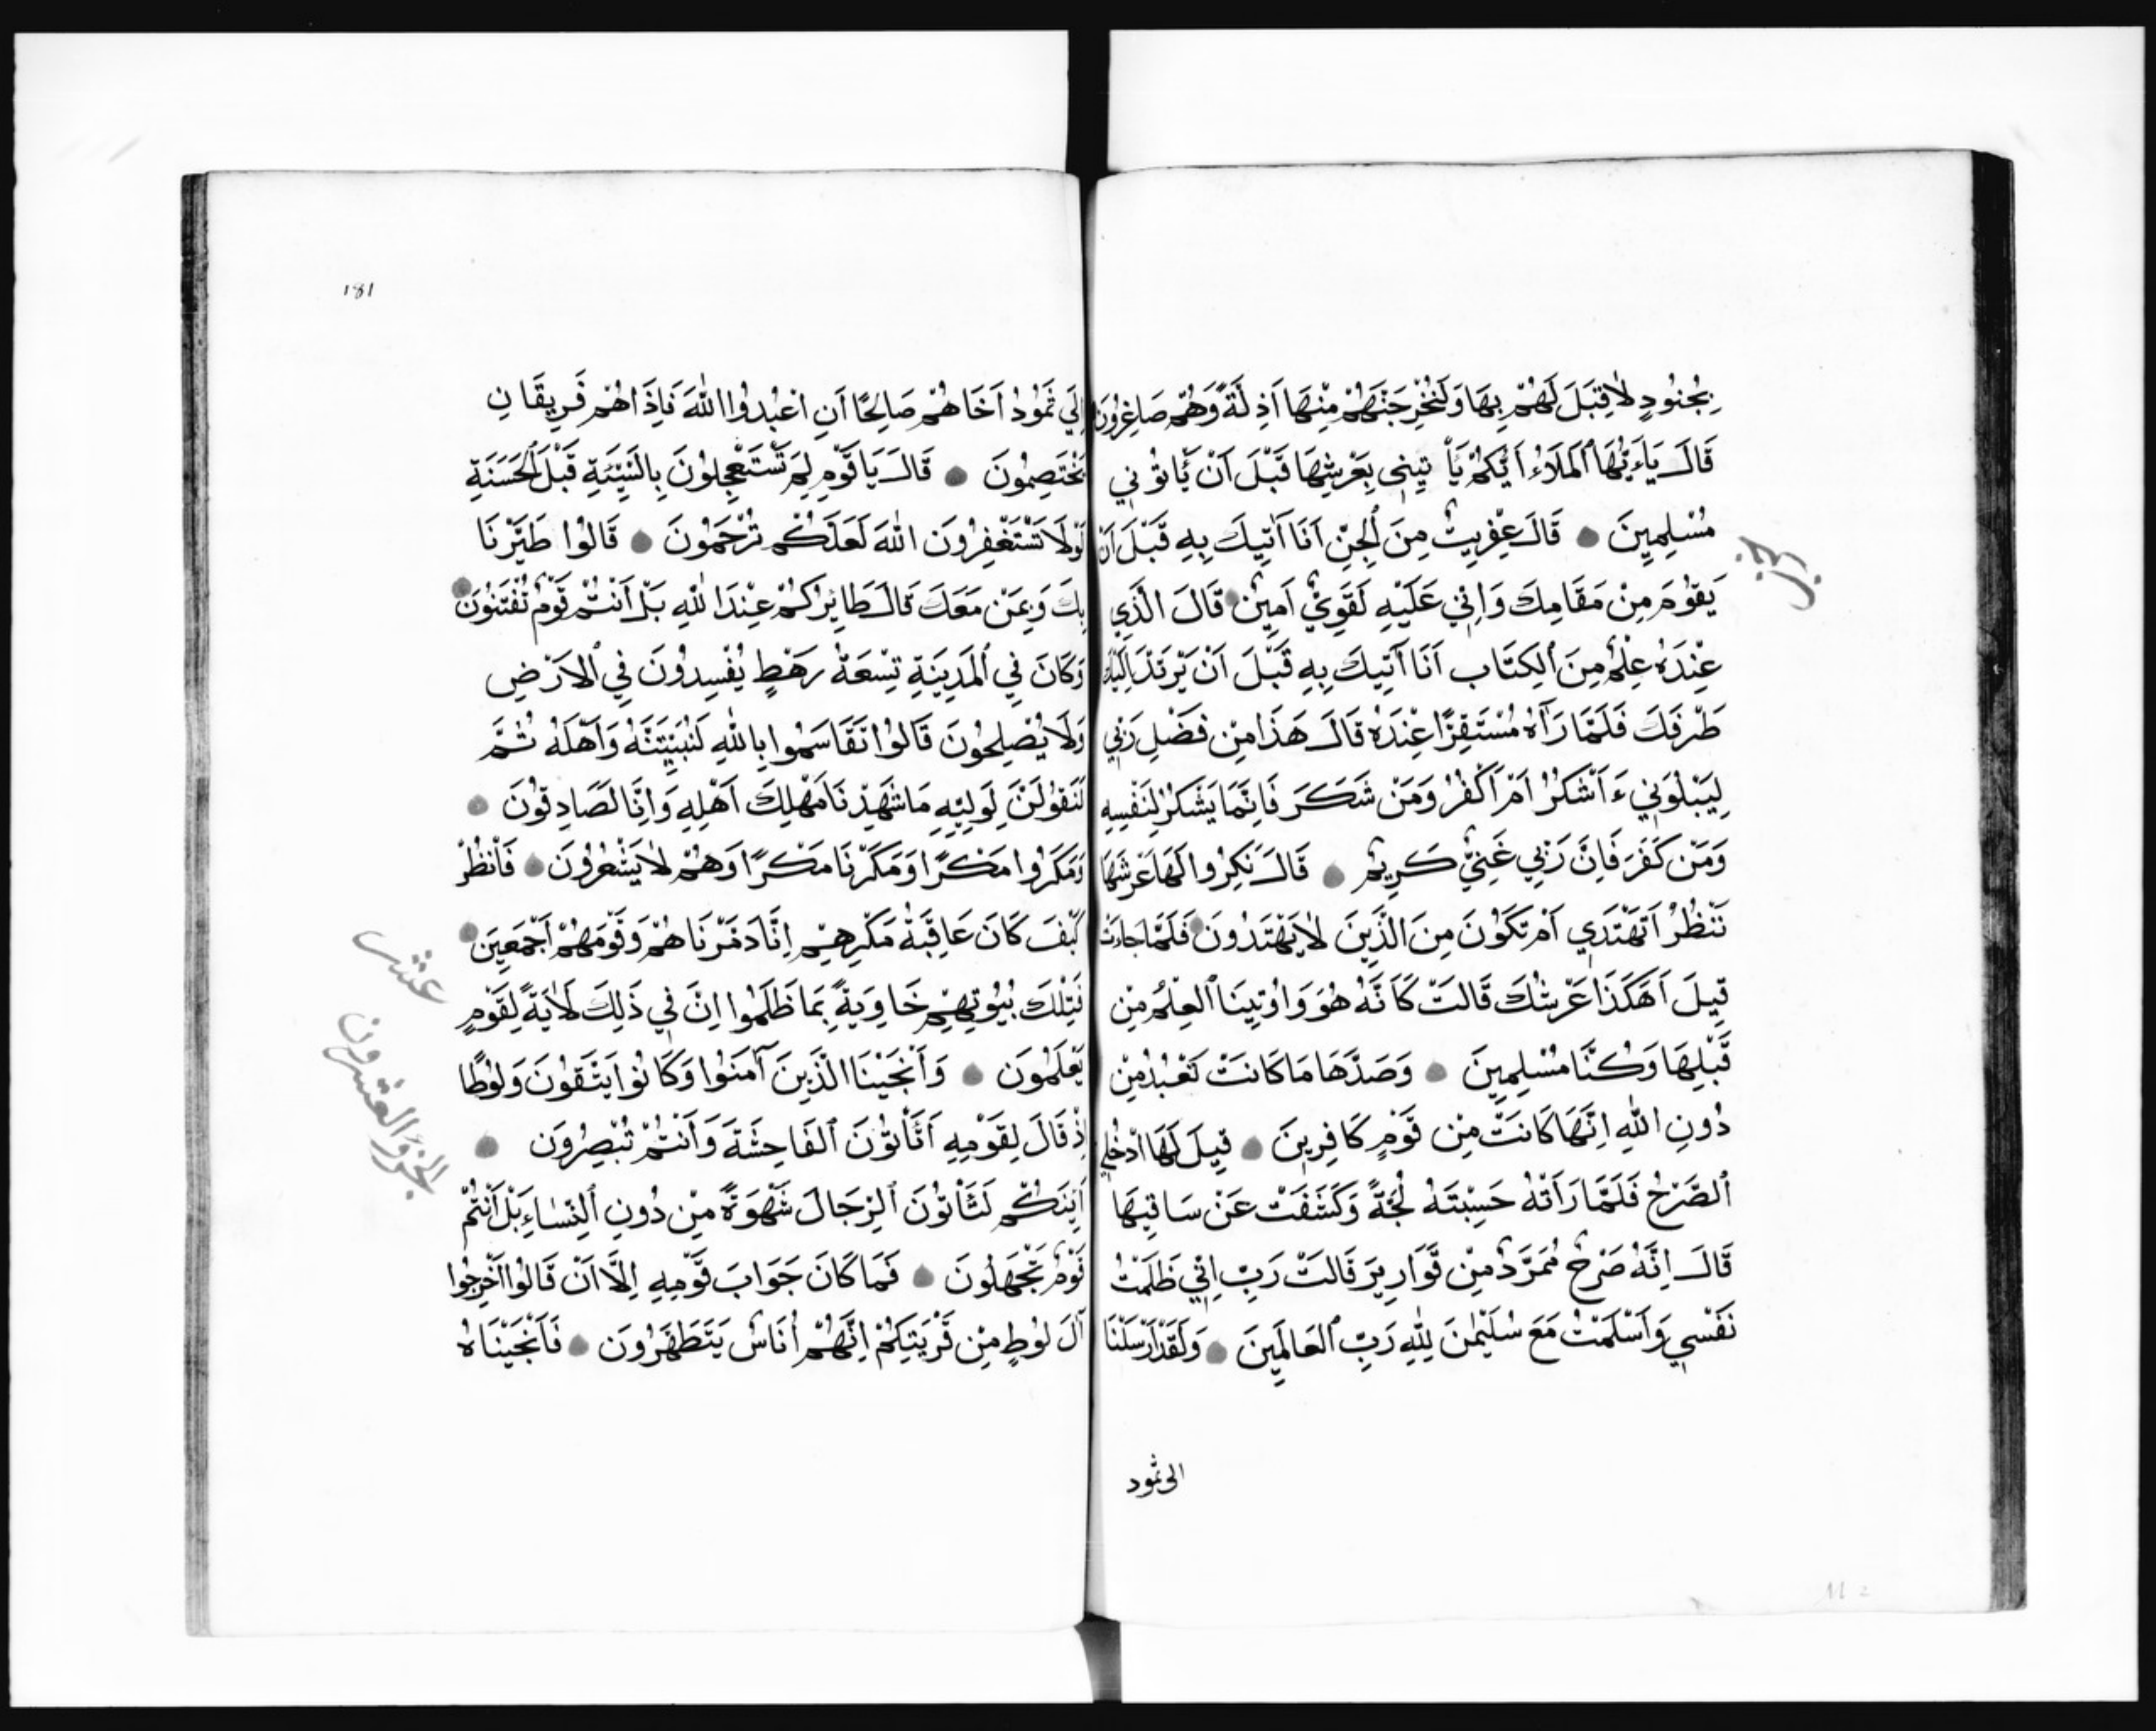 بِجُنُودٍ لَا قِبَلَ لَهُمْ بِهَا وَلَنُخْرِجَنَّهُمْ مِنْهَا اَذِلَّةً وَهُمْ صَاغِرُونَ
قَالَ يَاءَيُّهَا ٱلْمَلَاءُ اَيُّكُمْ يَأْتِينِي بِعَرْشِهَا قَبْلَ اَنْ يَأْتُونِي
مُسْلِمِينَ قَالَ عِفْرِيتٌ مِنَ ٱلْجِنِّ اَنَا اٰتِيكَ بِهِ قَبْلَ اَنْ
يَقُومَ مِنْ مَقَامِكَ وَاِنِّي عَلَيْهِ لَقَوِيٌّ اَمِينٌ قَالَ الَّذِي
عِنْدَهُ عِلْمٌ مِنَ ٱلْكِتَابِ اَنَا اٰتِيكَ بِهِ قَبْلَ اَنْ يَرْتَدَّ اِلَيْكَ
طَرْفُكَ فَلَمَّا رَآهُ مُسْتَقِرًّا عِنْدَهُ قَالَ هَذَا مِنْ فَضْلِ رَبِّي
لِيَبْلُوَنِي ءَاَشْكُرُ اَمْ اَكْفُرُ وَمَنْ شَكَرَ فَاِنَّمَا يَشْكُرُ لِنَفْسِهِ
وَمَنْ كَفَرَ فَاِنَّ رَبِّي غَنِيٌّ كَرِيمٌ قَالَ نَكِّرُوا لَهَا عَرْشَهَا
نَنْظُرْ اَتَهْتَدِي اَمْ تَكُونُ مِنَ الَّذِينَ لَا يَهْتَدُونَ فَلَمَّا جَاءَتْ
قِيلَ اَهَكَذَا عَرْشُكَ قَالَتْ كَاَنَّهُ هُوَ وَاُوتِينَا ٱلْعِلْمَ مِنْ
قَبْلِهَا وَكُنَّا مُسْلِمِينَ وَصَدَّهَا مَا كَانَتْ تَعْبُدُ مِنْ
دُونِ اللّٰهِ اِنَّهَا كَانَتْ مِنْ قَوْمٍ كَافِرِينَ قِيلَ لَهَا ادْخُلِي
ٱلصَّرْحَ فَلَمَّا رَاَتْهُ حَسِبَتْهُ لُجَّةً وَكَشَفَتْ عَنْ سَاقَيْهَا
قَالَ اِنَّهُ صَرْحٌ مُمَرَّدٌ مِنْ قَوَارِيرَ قَالَتْ رَبِّ اِنِّي ظَلَمْتُ
نَفْسِي وَاَسْلَمْتُ مَعَ سُلَيْمٰنَ لِلّٰهِ رَبِّ ٱلْعَالَمِينَ وَلَقَدْ اَرْسَلْنَا
الى ثمود
181
اِلَي ثَمُودَ اَخَاهُمْ صَالِحًا اَنِ اعْبُدُوا اللّٰهَ فَاِذَا هُمْ فَرِيقَانِ
يَخْتَصِمُونَ قَالَ يَا قَوْمِ لِمَ تَسْتَعْجِلُونَ بِالسَّيِّئَةِ قَبْلَ ٱلْحَسَنَةِ
لَوْلَا تَسْتَغْفِرُونَ اللّٰهَ لَعَلَّكُمْ تُرْحَمُونَ قَالُوا طَيَّرْنَا
بِكَ وَبِمَنْ مَعَكَ قَالَ طَايِرُكُمْ عِنْدَ اللّٰهِ بَلْ اَنْتُمْ قَوْمٌ تُفْتَنُونَ
وَكَانَ فِي ٱلْمَدِينَةِ تِسْعَةُ رَهْطٍ يُفْسِدُونَ فِي ٱلْاَرْضِ
وَلَا يُصْلِحُونَ قَالُوا تَقَاسَمُوا بِاللّٰهِ لَنُبَيِّتَنَّهُ وَاَهْلَهُ ثُمَّ
لَنَقُولَنَّ لِوَلِيِّهِ مَا شَهِدْنَا مَهْلِكَ اَهْلِهِ وَاِنَّا لَصَادِقُونَ
وَمَكَرُوا مَكْرًا وَمَكَرْنَا مَكْرًا وَهُمْ لَا يَشْعُرُونَ فَانْظُرْ
كَيْفَ كَانَ عَاقِبَةُ مَكْرِهِمْ اِنَّا دَمَّرْنَاهُمْ وَقَوْمَهُمْ اَجْمَعِينَ
عشر
فَتِلْكَ بُيُوتُهُمْ خَاوِيَةً بِمَا ظَلَمُوا اِنَّ فِي ذَلِكَ لَاٰيَةً لِقَوْمٍ
يَعْلَمُونَ وَاَنْجَيْنَا الَّذِينَ آمَنُوا وَكَانُوا يَتَّقُونَ وَلُوطًا
الجزؤ العشرون
اِذْ قَالَ لِقَوْمِهِ اَتَأْتُونَ ٱلْفَاحِشَةَ وَاَنْتُمْ تُبْصِرُونَ
اَيِنَّكُمْ لَتَأْتُونَ ٱلرِّجَالَ شَهْوَةً مِنْ دُونِ ٱلنِّسَاءِ بَلْ اَنْتُمْ
قَوْمٌ تَجْهَلُونَ فَمَا كَانَ جَوَابَ قَوْمِهِ اِلَّا اَنْ قَالُوا اَخْرِجُوا
آلَ لُوطٍ مِنْ قَرْيَتِكُمْ اِنَّهُمْ اُنَاسٌ يَتَطَهَّرُونَ فَاَنْجَيْنَاهُ